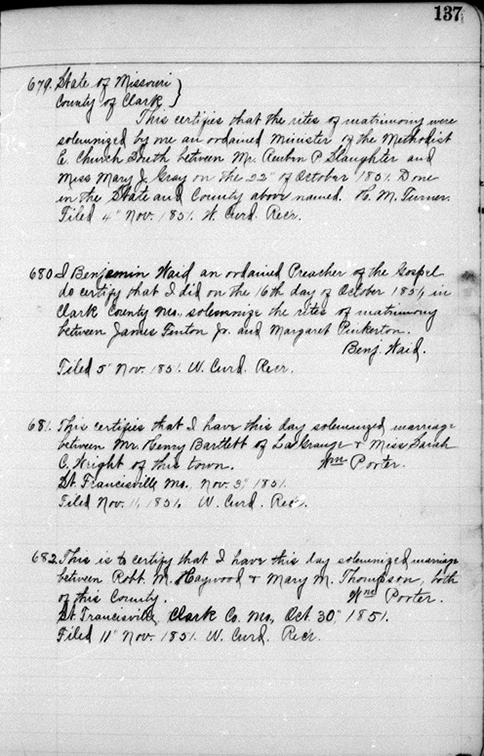 137
679. State of Missouri }
County of Clark. }
This certifies that the rites of matrimony were
solemnized by me an ordained Minister of the Methodist
E. Church South between Mr. Reuben P. Slaughter and
Miss Mary J. Gray on the 22" of October 1851. Done
in the State and County above named. H. M. Turner.
Filed 4" Nov. 1851. W. Curd. Recr.
680. I Benjamin Waid an ordained Preacher of the Gospel
do certify that I did on the 16th day of October 1851, in
Clark County Mo., solemnize the rites of matrimony
between James Fenton Jr. and Margaret Pinkerton.
Benj. Waid.
Filed 5" Nov. 1851. W. Curd. Recr.
681. This certifies that I have this day solemnized marriage
between Mr. Henry Bartlett of La Grange & Miss Sarah
C. Wright of this town. Wm Porter.
St. Francisville Mo., Nov. 3" 1851.
Filed Nov. 11, 1851. W. Curd. Recr.
682. This is to certify that I have this day solemnized marriage
between Robt. M. Haywood & Mary M. Thompson, both
of this County. Wm Porter.
St. Francisville, Clark Co. Mo., Oct. 30" 1851.
Filed 11" Nov. 1851. W. Curd. Recr.